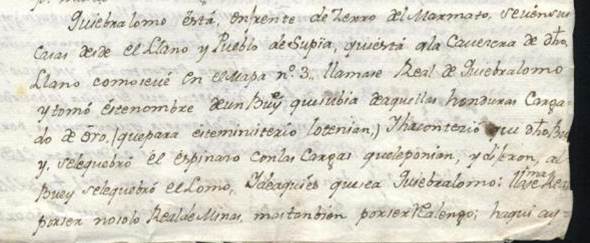 Quiebralomo está, enfrente de Zerro del Marmato, se vén sus
Casas desde el Llano y Pueblo de Supia, qui está a la Cavezera de dho.
Llano como se vé en el Mapa nº. 3. llamase Real de Quiebralomo
y tomó este nombre de un Buey qui subia de aquellas honduras Carga
do de Oro, (que para este ministerio lo tenian,) Y ha contezio qui dho. Bu
y, se le quebró el espinazo con las Cargas que le ponian, y dixeron, al
Buey se le quebró el Lomo, Y de aqui es que sea Quiebralomo: llamase Real
por ser no solo Real de Minas, mas tanbion por ser Realengo; haqui